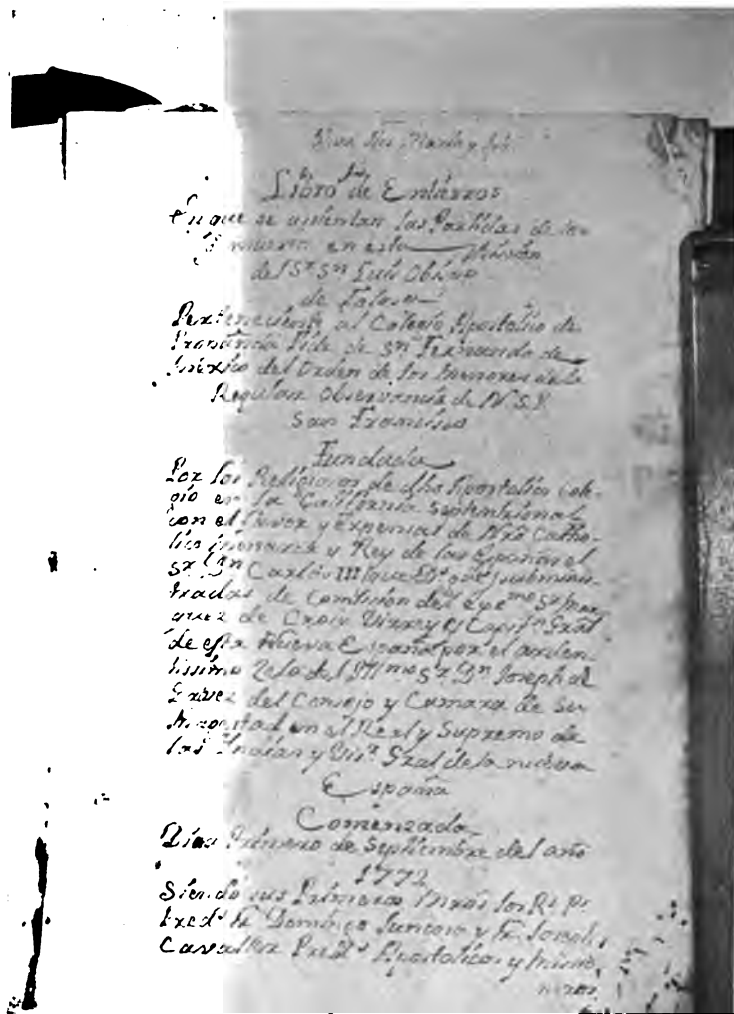 Viva Jhs Maria y Jph.
Libro de Entierros
En que se asientan las Partidas de los
q mueren en esta Mission
del Sr Sn Luis Obispo
de Tolosa
Perteneciente al Colegio Apostolico de
Propaganda Fide de Sn Fernando de
Mexico del Orden de los Menores de la
Regular Observancia de N.S.P.
San Francisco
Fundada
Por los Religiosos de dho Apostolico Cole-
gio en la California Septentrional
con el favor y expensas de Nro Catho-
lico Monarca y Rey de las Españas el
Sr Dn Carlos III (que Ds gde) subminis-
tradas de Comission del Exmo Sr Mar-
quez de Croix Virrey y Capitn Gral
de esta Nueva España por el arden-
tissimo Zelo del Illmo Sr Dn Joseph de
Galvez del Consejo y Camara de Su
Magestad en el Real y Supremo de
las Indias y Visr Gral de la nueva
España
Comenzado
Dia Primero de Septiembre del año
1772
Siendo sus Primeros Mros los Rs Ps
Pred.s Fr. Domingo Juncosa y Fr. Joseph
Cavaller Pred.s Apostolicos y Missio-
neros